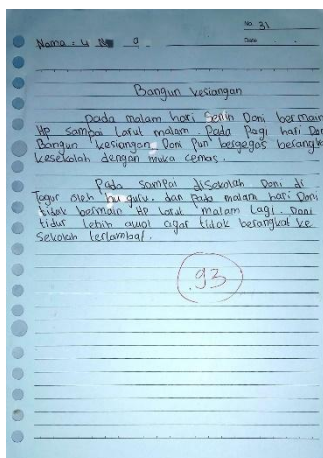 No. 31
Date
Nama: u
Bangun kesiangan
Pada malam hari Senin Doni bermain
Hp sampai larut malam. Pada Pagi hari Don
Bangun kesiangan. Doni Pun bergegas berangk
kesekolah dengan muka cemas.
Pada sampai disekolah Doni di
Tegur oleh bu guru. dan Pada malam hari Doni
tidak bermain HP larut malam Lagi. Doni
tidur lebih awal agar tidak berangkat ke
Sekolah terlambat.
93